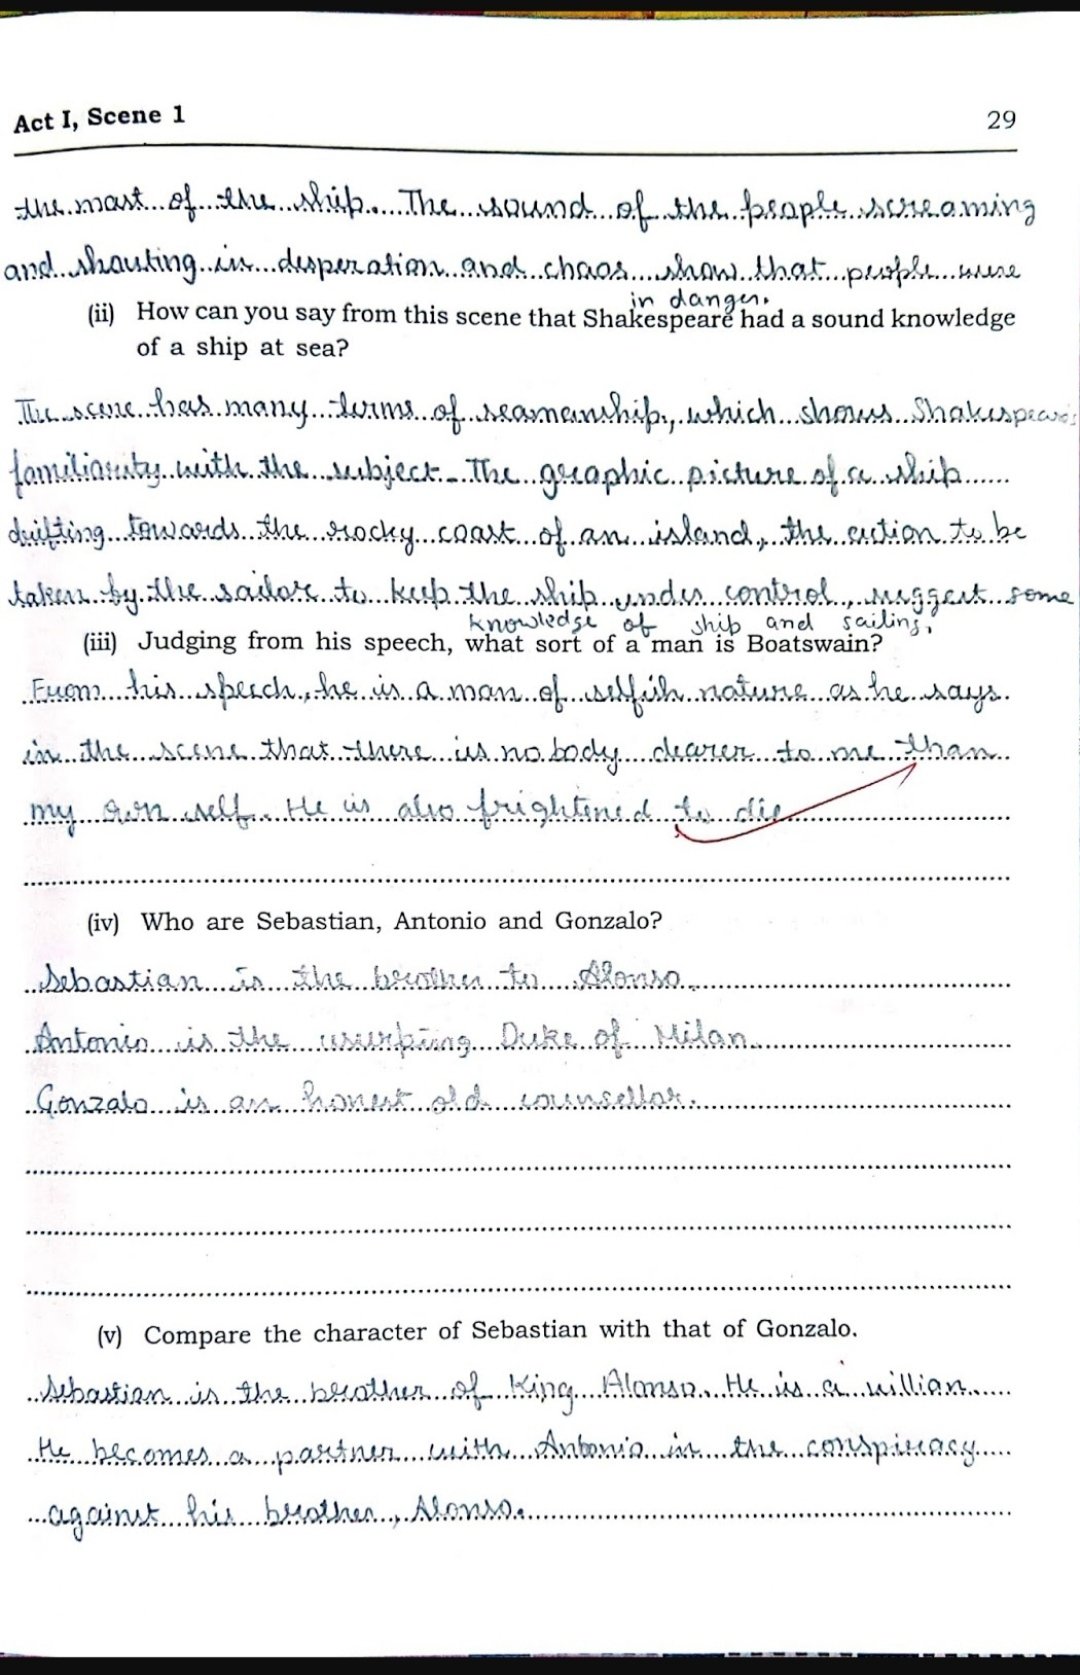 Act I, Scene 1 29
the mast of the ship. The sound of the people screaming
and shouting in desperation and chaos show that people were
in danger.
(ii) How can you say from this scene that Shakespeare had a sound knowledge
of a ship at sea?
The scene has many terms of seamanship, which shows Shakespeare's
familiarity with the subject. The graphic picture of a ship
drifting towards the rocky coast of an island, the action to be
taken by the sailors to keep the ship under control, suggest some
knowledge of ship and sailing.
(iii) Judging from his speech, what sort of a man is Boatswain?
From his speech, he is a man of selfish nature as he says
in the scene that there is nobody dearer to me than
my own self. He is also frightened to die
(iv) Who are Sebastian, Antonio and Gonzalo?
Sebastian is the brother to Alonso.
Antonio is the usurping Duke of Milan.
Gonzalo is an honest old counsellor.
(v) Compare the character of Sebastian with that of Gonzalo.
Sebastian is the brother of King Alonso. He is a villian.
He becomes a partner with Antonio in the conspiracy
against his brother, Alonso.